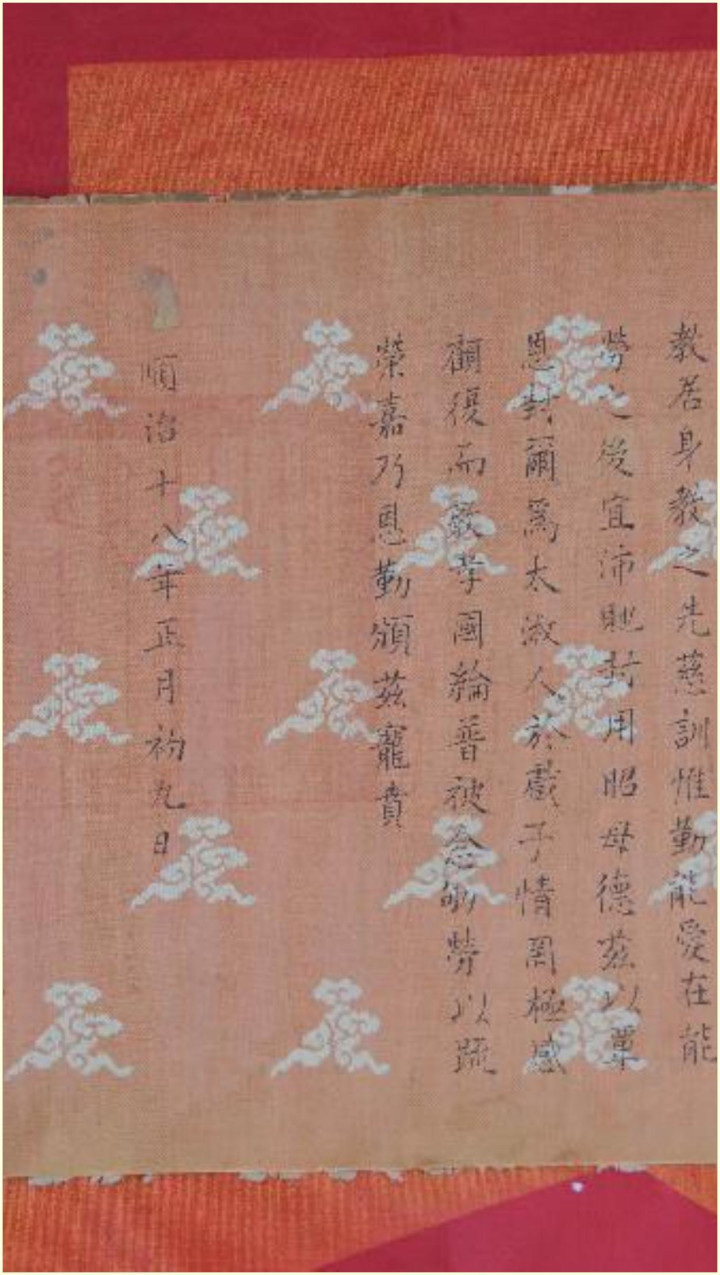 教居身教之先慈訓惟勤能愛在能
勞之後宜沛貤封用昭母德茲以覃
恩封爾爲太淑人於戲子情罔極感
顧復而教孝國綸普被念劬勞以疏
榮嘉乃恩勤頒茲寵賁
順治十八年正月初九日